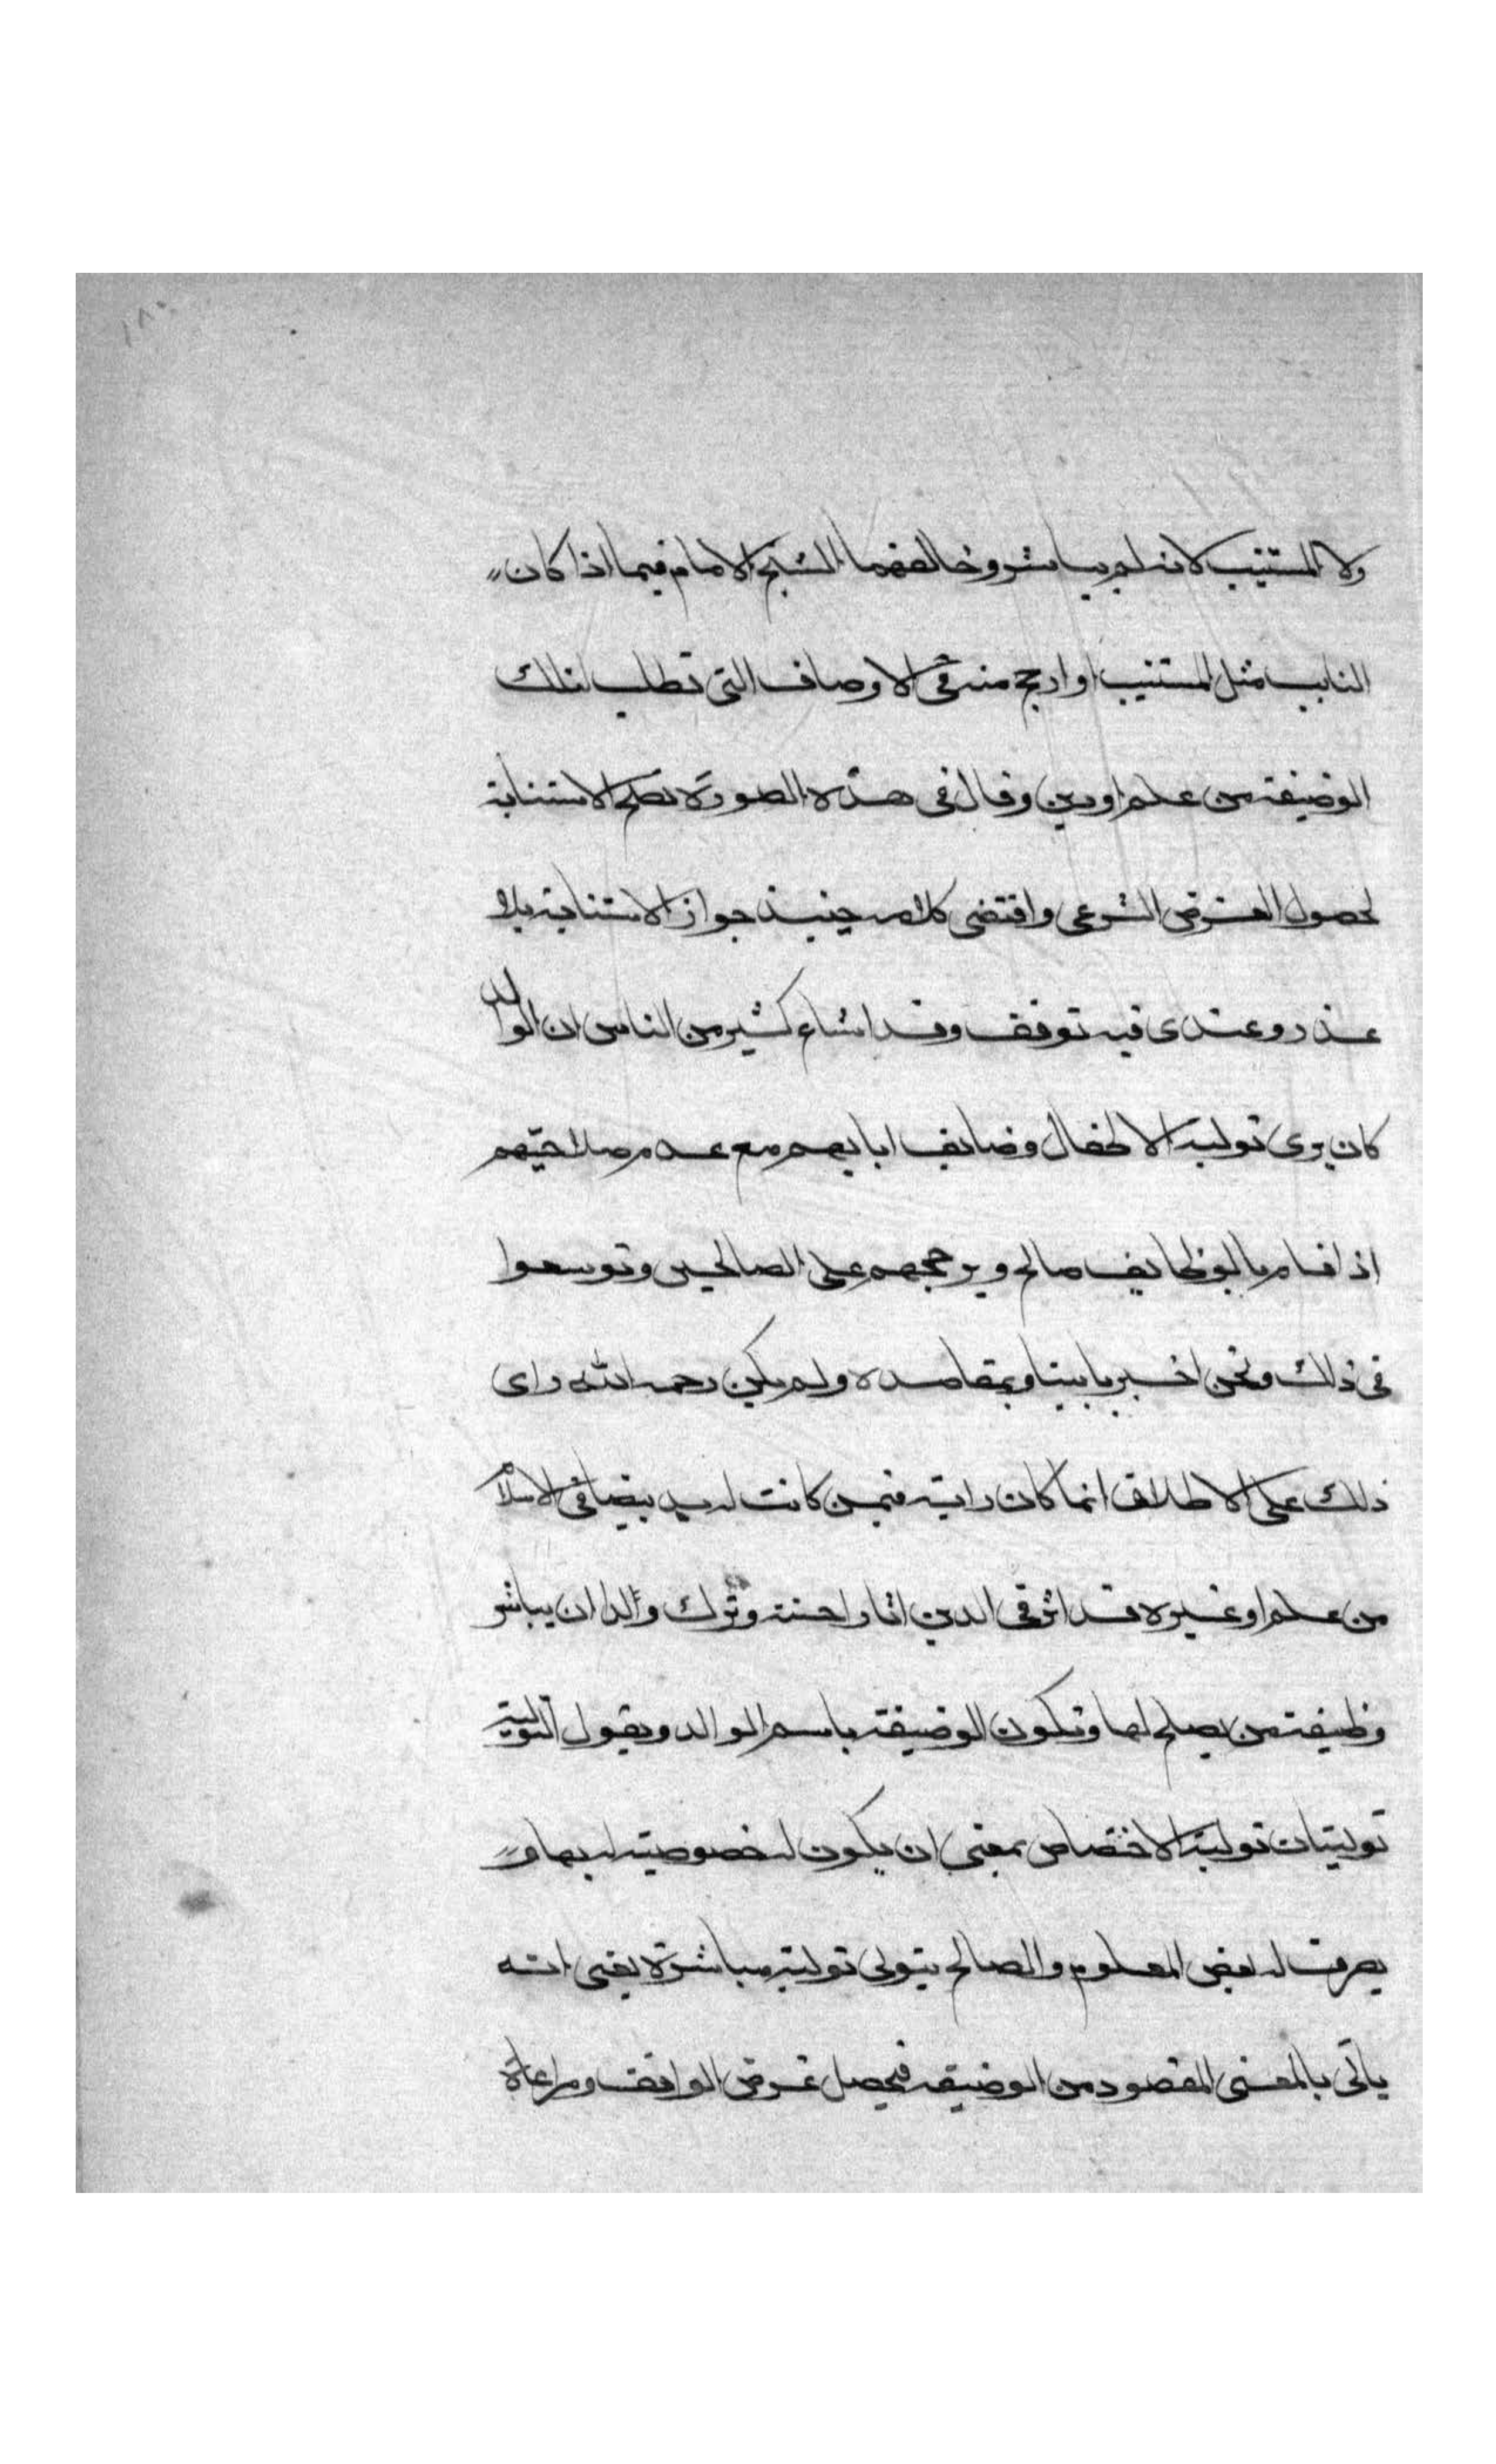 ١٨٠
ولا المستنيب لانه لم يباشر وخالفهما الشيخ الامام فيما اذا كان
النايب مثل المستنيب او ارجح منه في الاوصاف التي تطلب لتلك
الوضيفة من علم او دين وقال في هذه الصورة تصلح الاستنابة
لحصول الغرض الشرعي واقتضى كلامه حينيذ جواز الاستنابة بلا
عذر وعندي فيه توقف وقد اشاع كثير من الناس ان الوالد
كان يرى تولية الاطفال وضايف ابايهم مع عدم صلاحيتهم
اذا قام بالوظايف صالح ويرجحهم على الصالحين وتوسعوا
في ذلك ونحن اخبر بابينا وبمقاصده ولم يكن رحمه الله راى
ذلك على الاطلاق انما كان رايه فيمن كانت له يد بيضا في الاسلام
من علم او غيره قد اثر في الدين اثارا حسنة وترك ولدا ان يباشر
وظيفته من يصلح لها وتكون الوضيفة باسم الوالد ويقول التولية
توليتان تولية الاختصاص بمعنى ان يكون له خصوصية بها و
يصرف له بعض المعلوم والصالح يتولى تولية مباشرة يعني انه
ياتي بالمعنى المقصود من الوضيفه فيحصل غرض الواقف ومراعاة